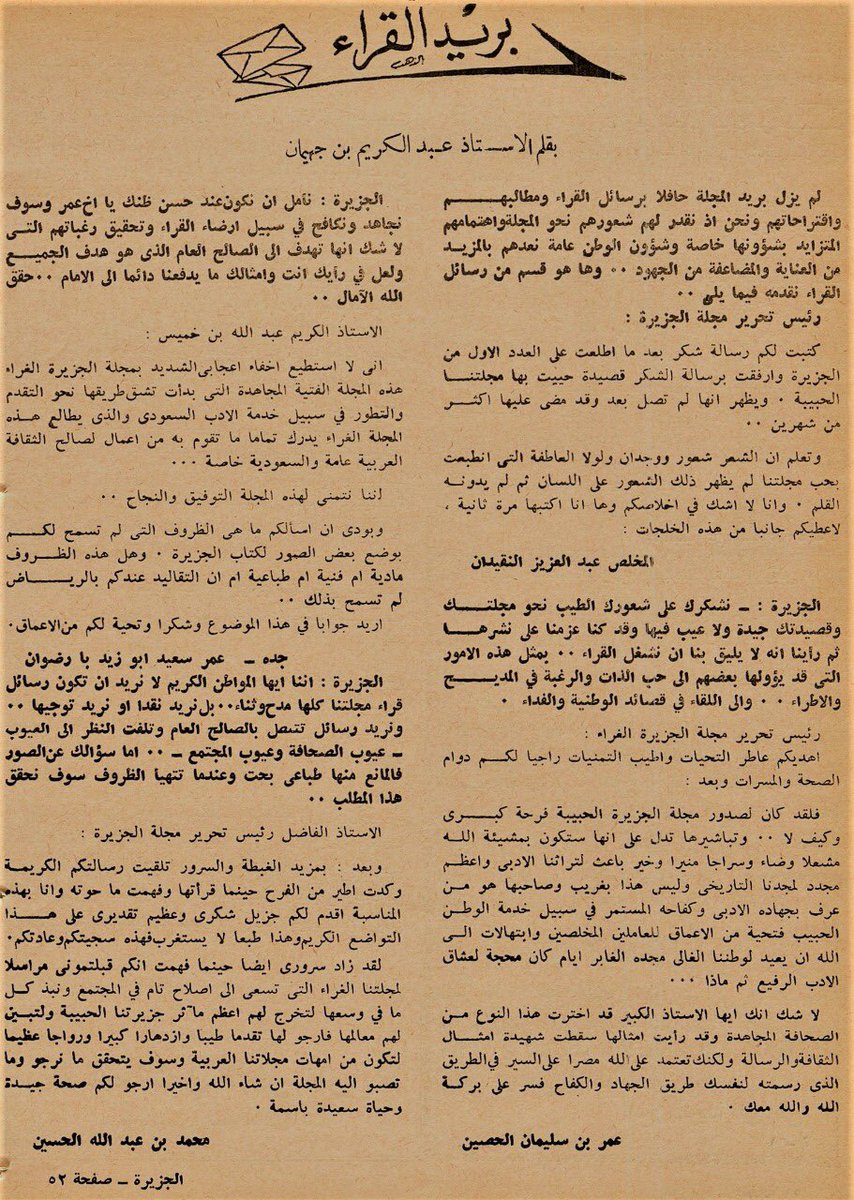 بريد القراء
بقلم الاستاذ عبد الكريم بن جهيمان
لم يزل بريد المجلة حافلا برسائل القراء ومطالبهم
واقتراحاتهم ونحن اذ نقدر لهم شعورهم نحو المجلة واهتمامهم
المتزايد بشؤونها خاصة وشؤون الوطن عامة نعدهم بالمزيد
من العناية والمضاعفة من الجهود ٠٠ وها هو قسم من رسائل
القراء نقدمه فيما يلى ٠٠
رئيس تحرير مجلة الجزيرة :
كتبت لكم رسالة شكر بعد ما اطلعت على العدد الاول من
الجزيرة وارفقت برسالة الشكر قصيدة حييت بها مجلتنا
الحبيبة ٠ ويظهر انها لم تصل بعد وقد مضى عليها اكثر
من شهرين ٠٠
وتعلم ان الشعر شعور ووجدان ولولا العاطفة التى انطبعت
بحب مجلتنا لم يظهر ذلك الشعور على اللسان ثم لم يدونه
القلم ٠ وانا لا اشك في اخلاصكم وها انا اكتبها مرة ثانية ،
لاعطيكم جانبا من هذه الخلجات :
المخلص عبد العزيز النقيدان
الجزيرة : ـ نشكرك على شعورك الطيب نحو مجلتك
وقصيدتك جيدة ولا عيب فيها وقد كنا عزمنا على نشرها
ثم رأينا انه لا يليق بنا ان نشغل القراء ٠٠ بمثل هذه الامور
التى قد يؤولها بعضهم الى حب الذات والرغبة في المديح
والاطراء ٠٠ والى اللقاء في قصائد الوطنية والفداء ٠
رئيس تحرير مجلة الجزيرة الغراء :
اهديكم عاطر التحيات واطيب التمنيات راجيا لكم دوام
الصحة والمسرات وبعد :
فلقد كان لصدور مجلة الجزيرة الحبيبة فرحة كبرى
وكيف لا ٠٠ وتباشيرها تدل على انها ستكون بمشيئة الله
مشعلا وضاء وسراجا منيرا وخير باعث لتراثنا الادبى واعظم
مجدد لمجدنا التاريخى وليس هذا بغريب وصاحبها هو من
عرف بجهاده الادبى وكفاحه المستمر في سبيل خدمة الوطن
الحبيب فتحية من الاعماق للعاملين المخلصين وابتهالات الى
الله ان يعيد لوطننا الغالى مجده الغابر ايام كان محجة لعشاق
الادب الرفيع ثم ماذا ٠٠٠
لا شك انك ايها الاستاذ الكبير قد اخترت هذا النوع من
الصحافة المجاهدة وقد رأيت امثالها سقطت شهيدة امثال
الثقافة والرسالة ولكنك تعتمد على الله مصرا على السير في الطريق
الذى رسمته لنفسك طريق الجهاد والكفاح فسر على بركة
الله والله معك ٠
عمر بن سليمان الحصين
الجزيرة : نأمل ان نكون عند حسن ظنك يا اخ عمر وسوف
نجاهد ونكافح في سبيل ارضاء القراء وتحقيق رغباتهم التى
لا شك انها تهدف الى الصالح العام الذى هو هدف الجميع
ولعل في رأيك انت وامثالك ما يدفعنا دائما الى الامام ٠٠ حقق
الله الآمال ٠٠
الاستاذ الكريم عبد الله بن خميس :
انى لا استطيع اخفاء اعجابى الشديد بمجلة الجزيرة الغراء
هذه المجلة الفتية المجاهدة التى بدأت تشق طريقها نحو التقدم
والتطور في سبيل خدمة الادب السعودى والذى يطالع هذه
المجلة الغراء يدرك تماما ما تقوم به من اعمال لصالح الثقافة
العربية عامة والسعودية خاصة ٠٠٠
اننا نتمنى لهذه المجلة التوفيق والنجاح ٠٠
وبودى ان اسألكم ما هى الظروف التى لم تسمح لكم
بوضع بعض الصور لكتاب الجزيرة ٠ وهل هذه الظروف
مادية ام فنية ام طباعية ام ان التقاليد عندكم بالرياض
لم تسمح بذلك ٠٠
اريد جوابا في هذا الموضوع وشكرا وتحية لكم من الاعماق٠
جده ـ عمر سعيد ابو زيد با رضوان
الجزيرة : اننا ايها المواطن الكريم لا نريد ان تكون رسائل
قراء مجلتنا كلها مدح وثناء٠٠بل نريد نقدا او نريد توجيها ٠٠
ونريد رسائل تتصل بالصالح العام وتلفت النظر الى العيوب
ـ عيوب الصحافة وعيوب المجتمع ـ ٠٠ اما سؤالك عن الصور
فالمانع منها طباعى بحت وعندما تتهيأ الظروف سوف نحقق
هذا المطلب ٠٠
الاستاذ الفاضل رئيس تحرير مجلة الجزيرة :
وبعد : بمزيد الغبطة والسرور تلقيت رسالتكم الكريمة
وكدت اطير من الفرح حينما قرأتها وفهمت ما حوته وانا بهذه
المناسبة اقدم لكم جزيل شكرى وعظيم تقديرى على هذا
التواضع الكريم وهذا طبعا لا يستغرب فهذه سجيتكم وعادتكم٠
لقد زاد سرورى ايضا حينما فهمت انكم قبلتمونى مراسلا
لمجلتنا الغراء التى تسعى الى اصلاح تام في المجتمع ونبذ كل
ما في وسعها لتخرج لهم اعظم مآثر جزيرتنا الحبيبة ولتبين
لهم معالمها فارجو لها تقدما طيبا وازدهارا كبيرا ورواجا عظيما
لتكون من امهات مجلاتنا العربية وسوف يتحقق ما نرجو وما
تصبو اليه المجلة ان شاء الله واخيرا ارجو لكم صحة جيدة
وحياة سعيدة باسمة ٠
محمد بن عبد الله الحسين
الجزيرة ـ صفحة ٥٢